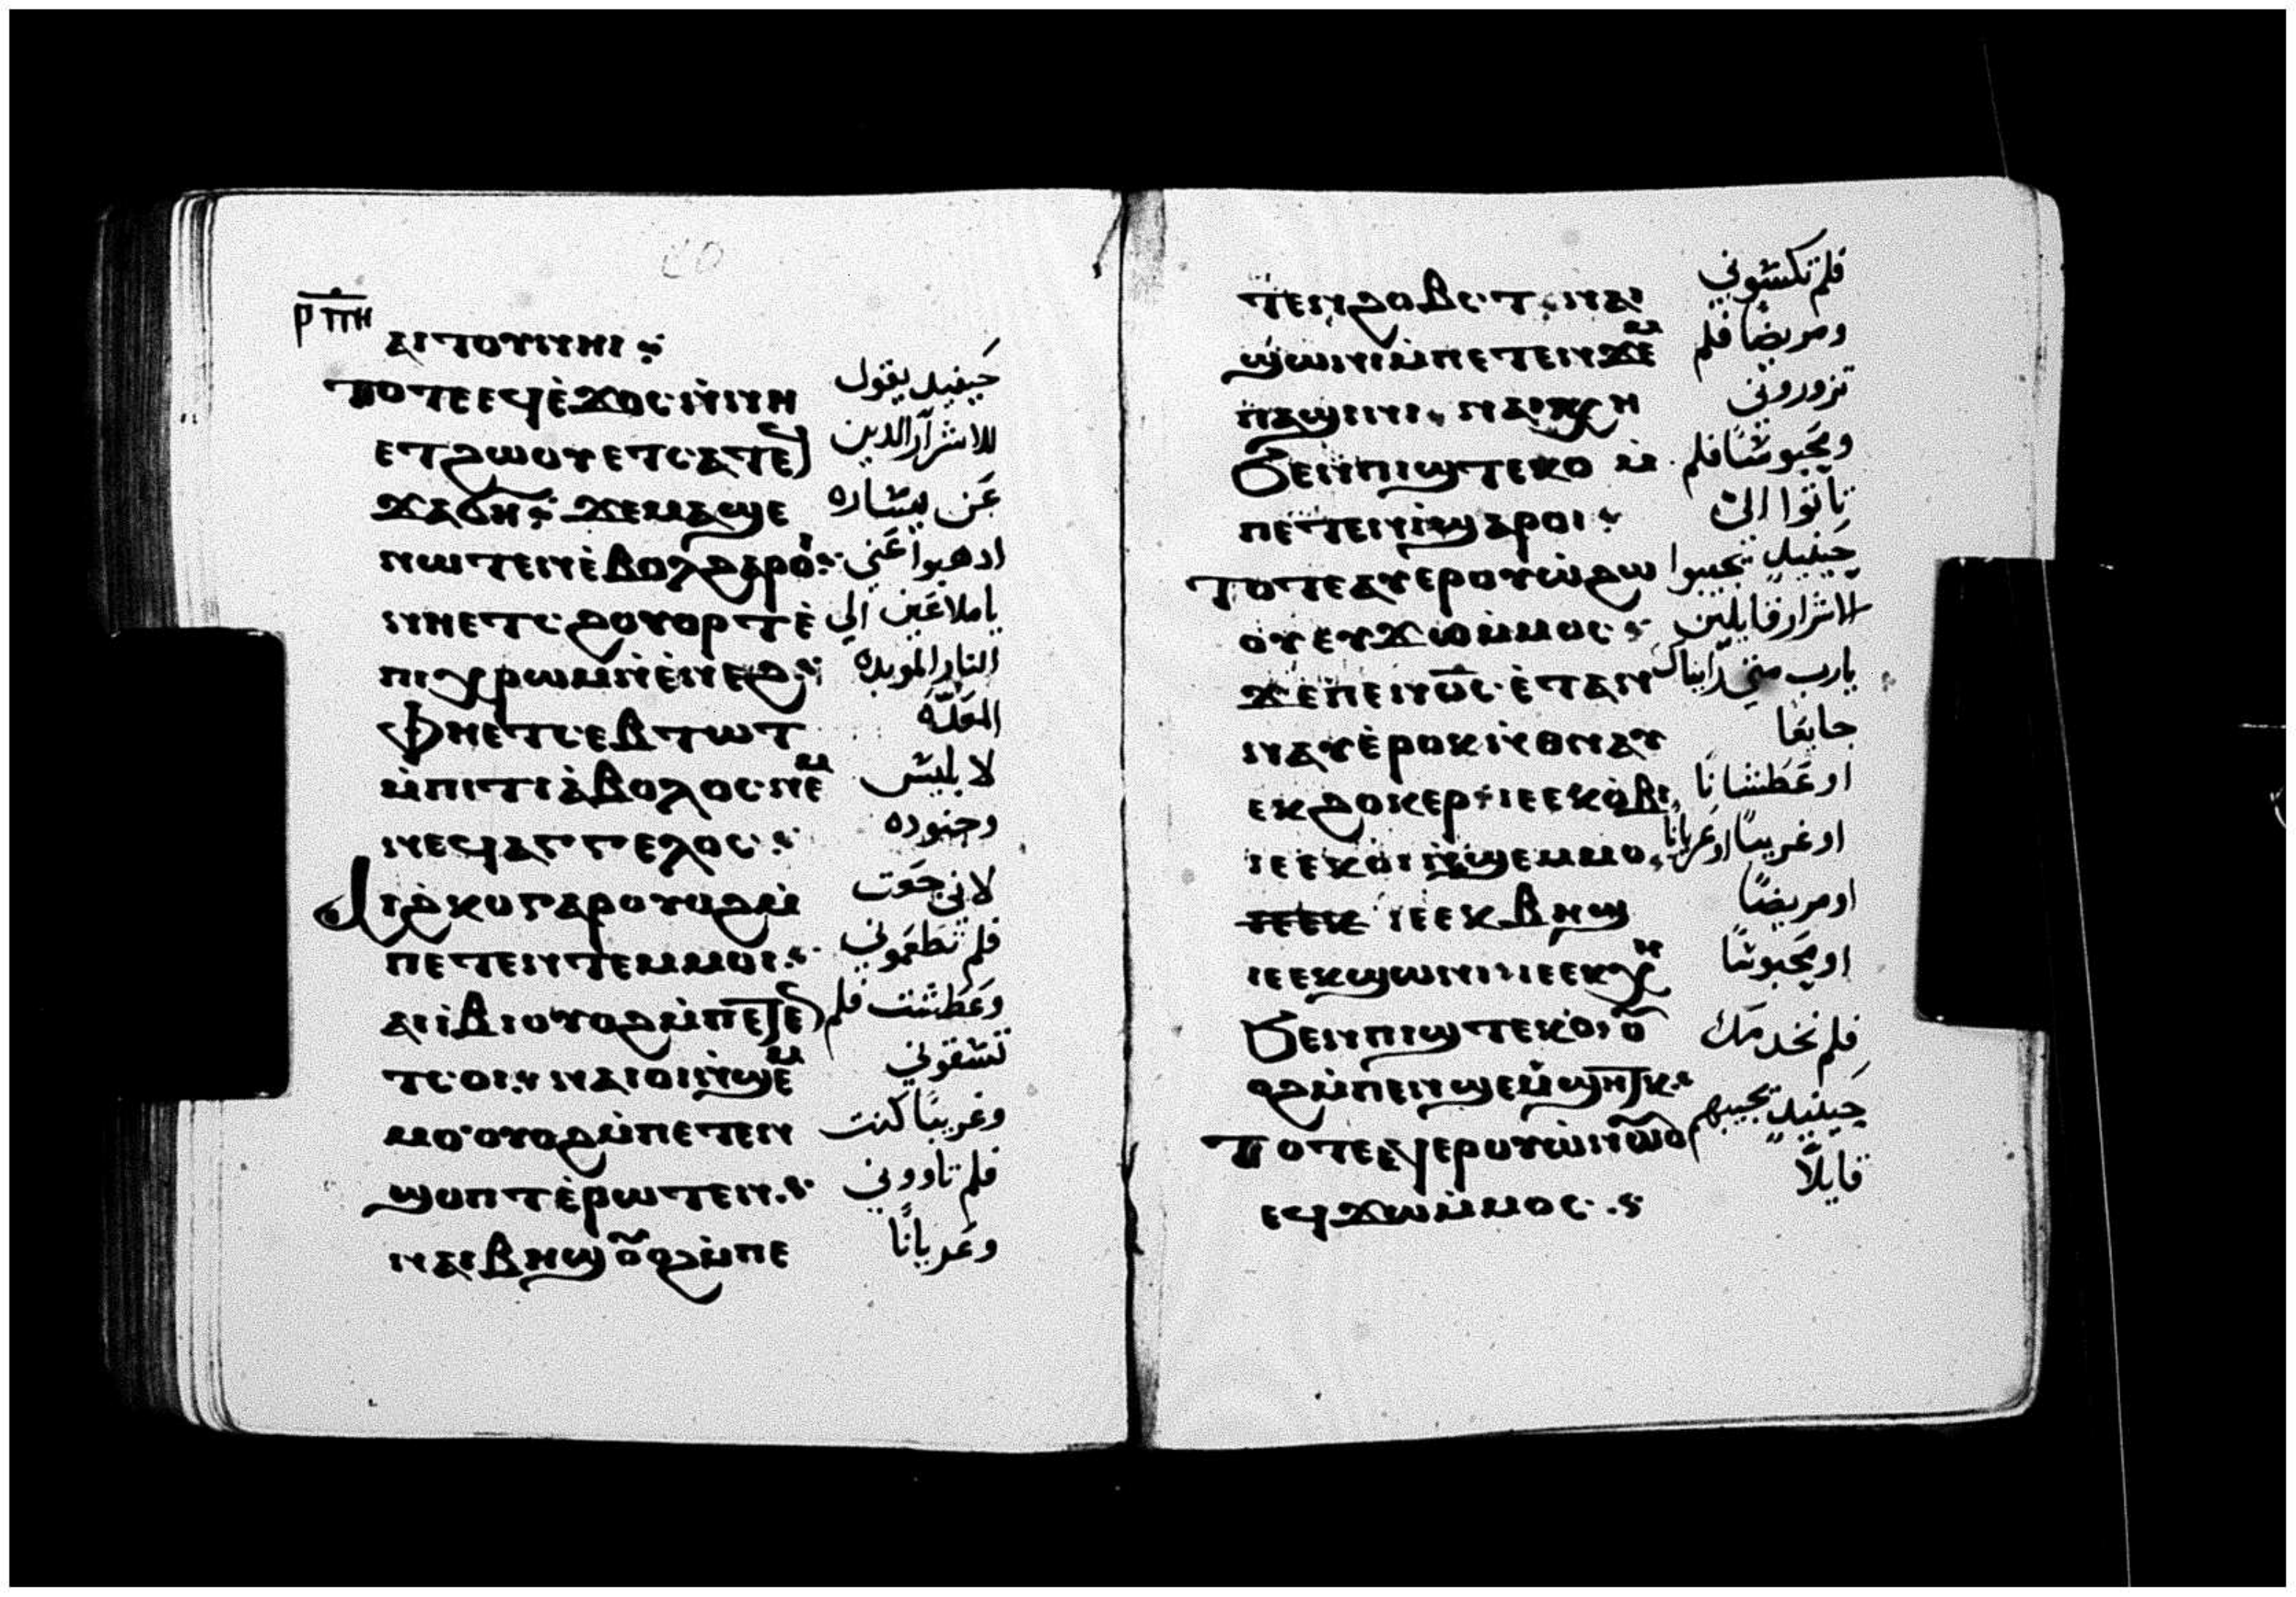 ⲣⲡⲏ
ⲁⲓⲧⲟⲩⲓⲛⲏⲓ ⁘
ⲧⲟⲧⲉ ⲉϥⲉ̀ϫⲟⲥ ⲛ̀ⲛⲏ حينيد يقول
ⲉⲧϩⲱⲟⲩ ⲉⲧⲥⲁⲧⲉ للاشرار الدين
ϫⲁϭⲏ ⁘ ϫⲉ ⲙⲁϣⲉ عن يساره
ⲛⲱⲧⲉⲛ ⲉ̀ⲃⲟⲗ ϩⲁⲣⲟ ⁘ ادهبوا عني
ⲛⲏⲉⲧⲥϩⲟⲩⲟⲣⲧ ⲉ̀ ياملاعين الي
ⲡⲓⲭⲣⲱⲙ ⲛ̀ⲉ̀ⲛⲉϩ ⁘ النار الموبده
ⲫⲏⲉⲧⲥⲉⲃⲧⲱⲧ المعدّه
ⲙ̀ⲡⲓⲧⲓⲁ̀ⲃⲟⲗⲟⲥ ⲛⲉⲙ لابليس
ⲛⲉϥⲁⲅⲅⲉⲗⲟⲥ ⁘ وجنوده
ⲁⲓϩⲕⲟ ⲅⲁⲣ ⲟⲩⲟϩ ⲙ̀ لاني جعت
ⲡⲉⲧⲉⲛⲧⲉⲙⲙⲟⲓ ⁘ فلم تطعموني
ⲁⲓⲓⲃⲓ ⲟⲩⲟϩ ⲙ̀ⲡⲉⲧⲉ وعطشت فلم
ⲧⲥⲟⲓ ⁘ ⲛⲁⲓⲟⲓ ⲛ̀ϣⲉⲙ تسقوني
ⲙⲟ ⲟⲩⲟϩ ⲙ̀ⲡⲉⲧⲉⲛ وغريبًا كنت
ϣⲟⲡⲧ ⲉ̀ⲣⲱⲧⲉⲛ ⁘ فلم تاووني
ⲛⲁⲓⲃⲏϣ ⲟⲟϩ ⲙ̀ⲡⲉ وعريانًا
ⲧⲉⲛϩⲟⲃⲥⲧ ⲛⲁⲓ فلم تكسوني
ϣⲱⲛⲓ ⲙ̀ⲡⲉⲧⲉⲛϫⲉⲙ ومريضًا فلم
ⲡⲁϣⲓⲛⲓ ⲛⲁⲓⲭⲏ تزوروني
ϧⲉⲛ ⲡⲓϣⲧⲉⲕⲟ ⲙ ومحبوسًا فلم
ⲡⲉⲧⲉⲛⲓ̀ ϣⲁⲣⲟⲓ ⁘ تاتوا الىّ
ⲧⲟⲧⲉ ⲁⲩⲉⲣⲟⲩⲱ̀ ϩⲱ حينيد تجيبوا
ⲟⲩ ⲉⲩϫⲱ ⲙ̀ⲙⲟⲥ ⁘ الاشرار قايلين
ϫⲉ ⲡⲉⲛϭⲥ ⲉ̀ⲧⲁⲛ يارب متي رايناك
ⲛⲁⲩ ⲉ̀ⲣⲟⲕ ⲛ̀ⲑⲛⲁⲩ جايعًا
ⲉⲕϩⲟⲕⲉⲣ ⲓⲉ ⲉⲕⲟ̀ⲃⲓ او عطشانًا
ⲓⲉ ⲉⲕⲟⲓ ⲛ̀ϣⲉⲙⲙⲟ او غريبًا او عريانًا
ⲓⲉ ⲉⲕⲃⲏϣ او مريضًا
ⲓⲉ ⲉⲕϣⲱⲛⲓ ⲓⲉ ⲉⲕⲭⲏ او محبوسًا
ϧⲉⲛ ⲡⲓϣⲧⲉⲕⲟ ⲟ فلم نخدمك
ⲟϩ ⲙ̀ⲡⲉⲛϣⲉⲙ̀ϣⲏⲧⲕ ⁘ حينيد تجيبهم
ⲧⲟⲧⲉ ⲉϥⲉⲣⲟⲩⲱ̀ ⲛⲱⲟ قايلًا
ⲉϥϫⲱ ⲙ̀ⲙⲟⲥ ⁘